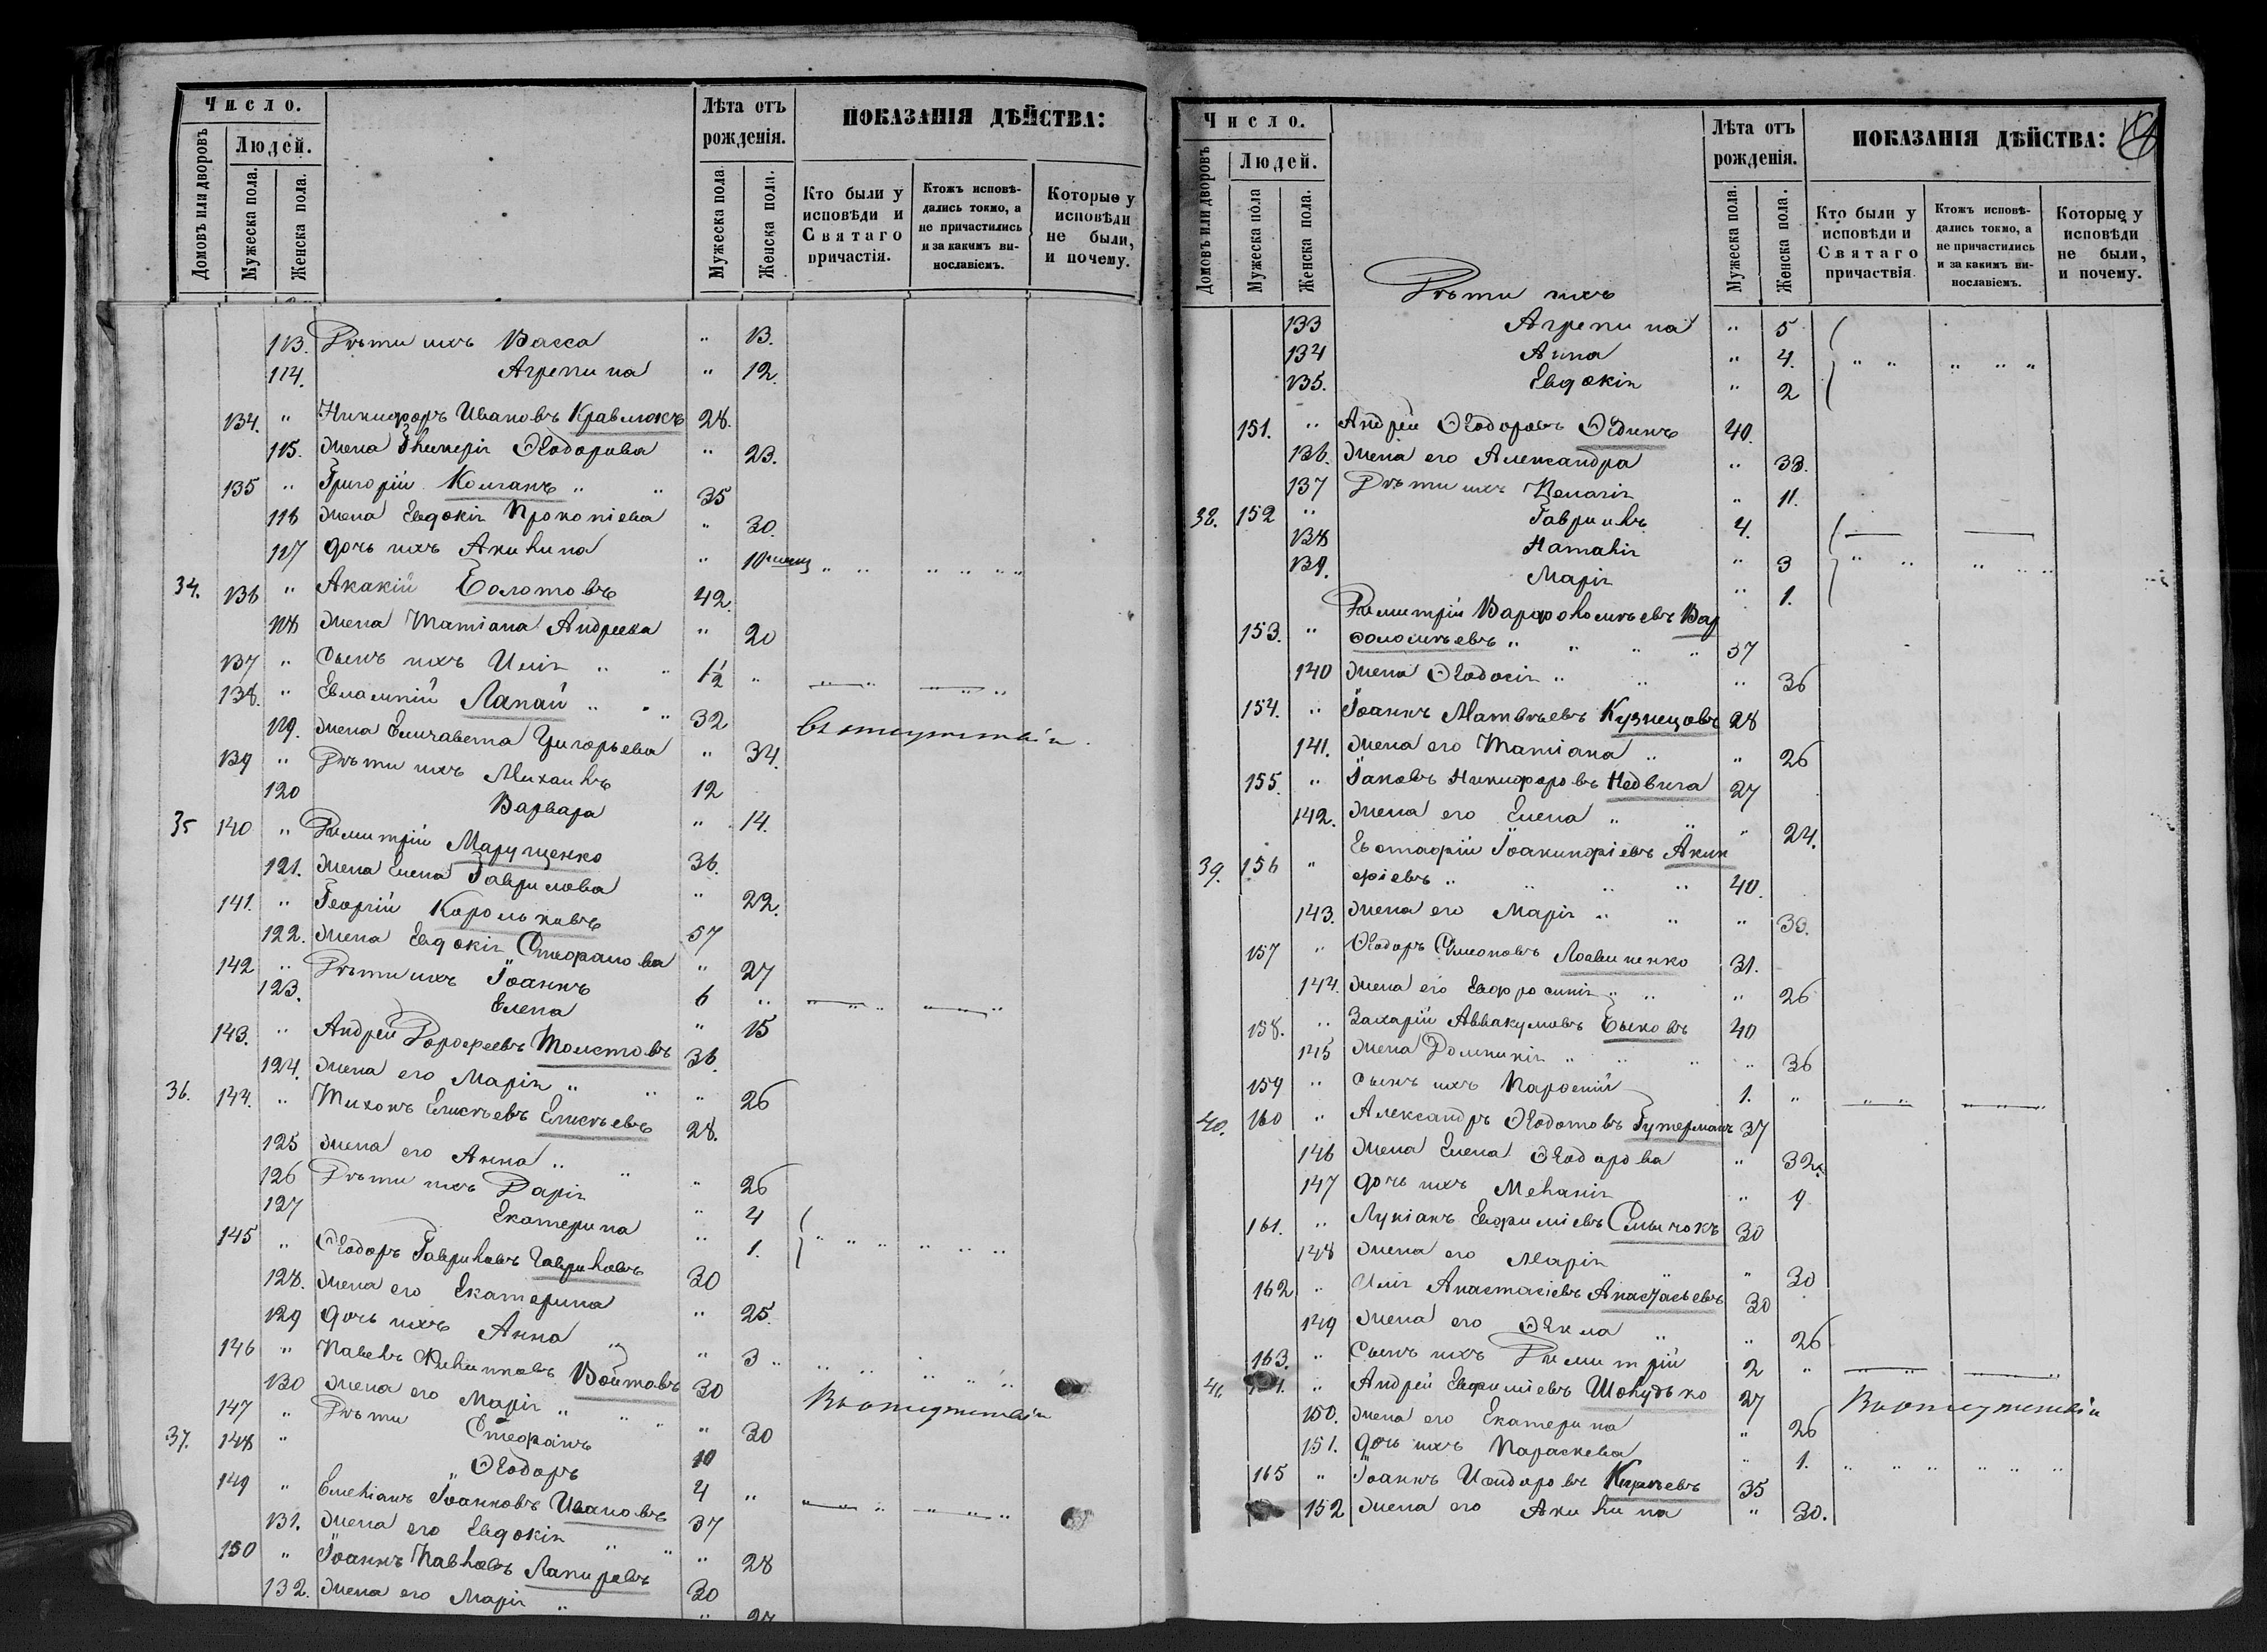 Число.
Лѣта отъ рожденія.
ПОКАЗАНІЯ ДѢЙСТВА:
Домовъ или дворовъ
Людей.
Мужеска пола.
Женска пола.
Мужеска пола
Женска пола.
Кто были у исповѣди и Святаго причастія.
Ктожъ исповѣдались токмо, а не причастились и за какимъ винославіемъ.
Которые у исповѣди не были, и почему.
113. Дѣти ихъ Васса " 13.
114. Агрепина " 12.
134. " Никифоръ Ивановъ Кравлюкъ 28.
115. Жена Гликерія Ѳеодорова " 23.
135 " Григорій Колганъ " " 35
116 Жена Евдокія Прокопіева " 30.
117 дочь ихъ Акилина " " " " " " "
34. 136 " Акакій Болотовъ 42.
118 Жена Татіана Андреева " 20
137 " Сынъ ихъ Илія " " 1½ "
138. " Евлампій Лапай " " " 32
119. Жена Елизавета Григорьева " 34. Въ отсутствіи.
139 " Дѣти ихъ Михаилъ 12
120 Варвара " 14.
35 140 " Димитрій Марущенко 36.
121. Жена Елена Гаврилова " 22.
141. " Георгій Корольковъ 57
122. Жена Евдокія Стефанова " 27
142 " Дѣти ихъ Іоаннъ 6 "
123. Елена " 15
143. " Андрей Дорофеевъ Толстовъ 36.
124. Жена его Марія " " " 26
36. 144. " Тихонъ Елисѣевъ Елисѣевъ 28.
125 Жена его Анна " " " 26
126 Дѣти ихъ Дарія " 4
127 Екатерина " 1. " " " " " "
145 " Ѳеодоръ Гавриловъ Гавриловъ 30
128. Жена его Екатерина " 25.
129 дочь ихъ Анна " " 3 " " " " " "
146 " Павелъ Филиповъ Войтовъ 30
130 Жена его Марія " " " " 30 Въ отсутствіи
147 " Дѣти Стефанъ 10
37. 148 " Ѳеодоръ 4 "
149 " Емеліанъ Іоанновъ Ивановъ 37
131. Жена его Евдокія " " " 28
150 " Іоаннъ Павловъ Лапиревъ 30
132. Жена его Марія " " 27
Число.
Лѣта отъ рожденія.
ПОКАЗАНІЯ ДѢЙСТВА:
Домовъ или дворовъ
Людей.
Мужеска пола
Женска пола.
Мужеска пола.
Женска пола.
Кто были у исповѣди и Святаго причастія
Ктожъ исповѣдались токмо, а не причастились и за какимъ винославіемъ.
Которые у исповѣди не были, и почему.
Дѣти ихъ
133 Агрепина " 5
134 Анна " 4. " " " " "
135. Евдокія " 2
151. " Андрей Ѳеодоровъ Ѳединъ 40.
136. Жена его Александра " 33.
137 Дѣти ихъ Пелагія " 11.
38. 152 " Гавріилъ 4.
138 Наталія " 3 " " " " "
139. Марія " 1.
Димитрій Варфоломѣевъ Вар
153. " фоломѣевъ " " " " 57
140 Жена Ѳеодосія " " " 36
154. " Іоаннъ Матвѣевъ Кузнецовъ 28
141. Жена его Татіана " " 26
155. " Іаковъ Никифоровъ Недвига 27
142. Жена его Елена " " " 24.
Евстафій Іоакинфіевъ Акин
39. 156 " фіевъ " " " " 40.
143. Жена его Марія " " " 30.
157 " Ѳеодоръ Симоновъ Логвиненко 31.
144. Жена его Евфросинія " " " 26
158. " Захарій Аввакумовъ Быковъ 40
145 Жена Домникія " " " " 36
159 " Сынъ ихъ Парфеній 1. "
40. 160 " Александръ Ѳедотовъ Гутерманъ 37
146 Жена Елена Ѳеодорова " 32.
147 дочь ихъ Меланія " 9
161. " Лукіанъ Евфиміевъ Смычокъ 30
148 Жена его Марія " " 30
162 " Илія Анастасіевъ Анастасьевъ 30
149 Жена его Ѳекла " " 26
163. " Сынъ ихъ Димитрій 2 "
41. " Андрей Евфиміевъ Шолудько 27
150. Жена его Екатерина " 26 Въ отсутствіи
151. Дочь ихъ Параскева " 1. " " " " " "
165 " Іоаннъ Исидоровъ 35
152 Жена его Акилина " 30.